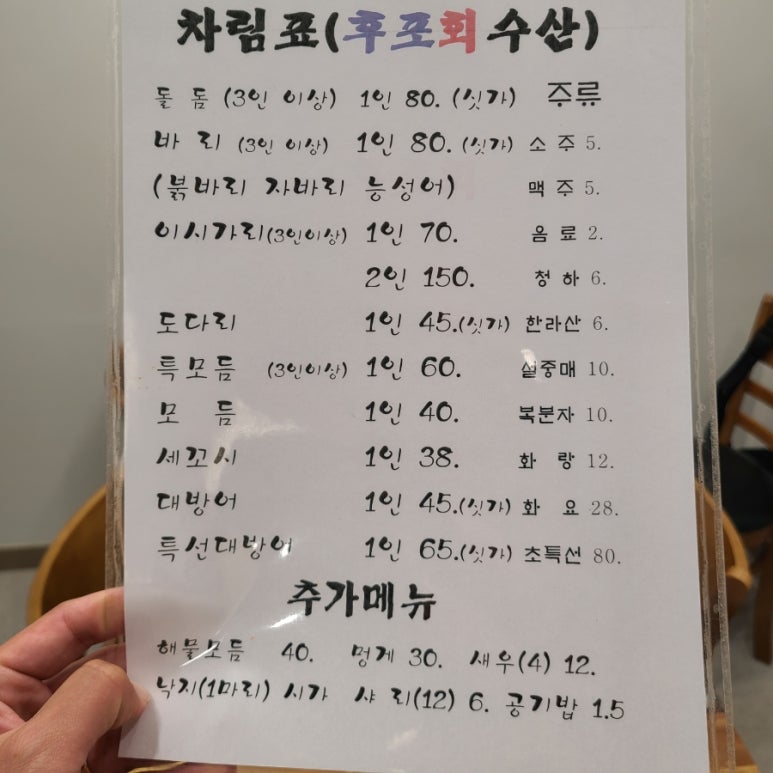 차림표(후포회수산)
돌 돔 (3인 이상) 1인 80. (싯가) 주류
바 리 (3인 이상) 1인 80. (싯가) 소 주 5.
(붉바리 자바리 능성어) 맥 주 5.
이시가리(3인이상) 1인 70. 음 료 2.
2인 150. 청 하 6.
도다리 1인 45.(싯가) 한라산 6.
특모듬 (3인이상) 1인 60. 설중매 10.
모 듬 1인 40. 복분자 10.
세꼬시 1인 38. 화 랑 12.
대방어 1인 45.(싯가) 화 요 28.
특선대방어 1인 65.(싯가) 초특선 80.
추가메뉴
해물모듬 40. 멍게 30. 새우(4) 12.
낙지(1마리) 시가 샤 리(12) 6. 공기밥 1.5